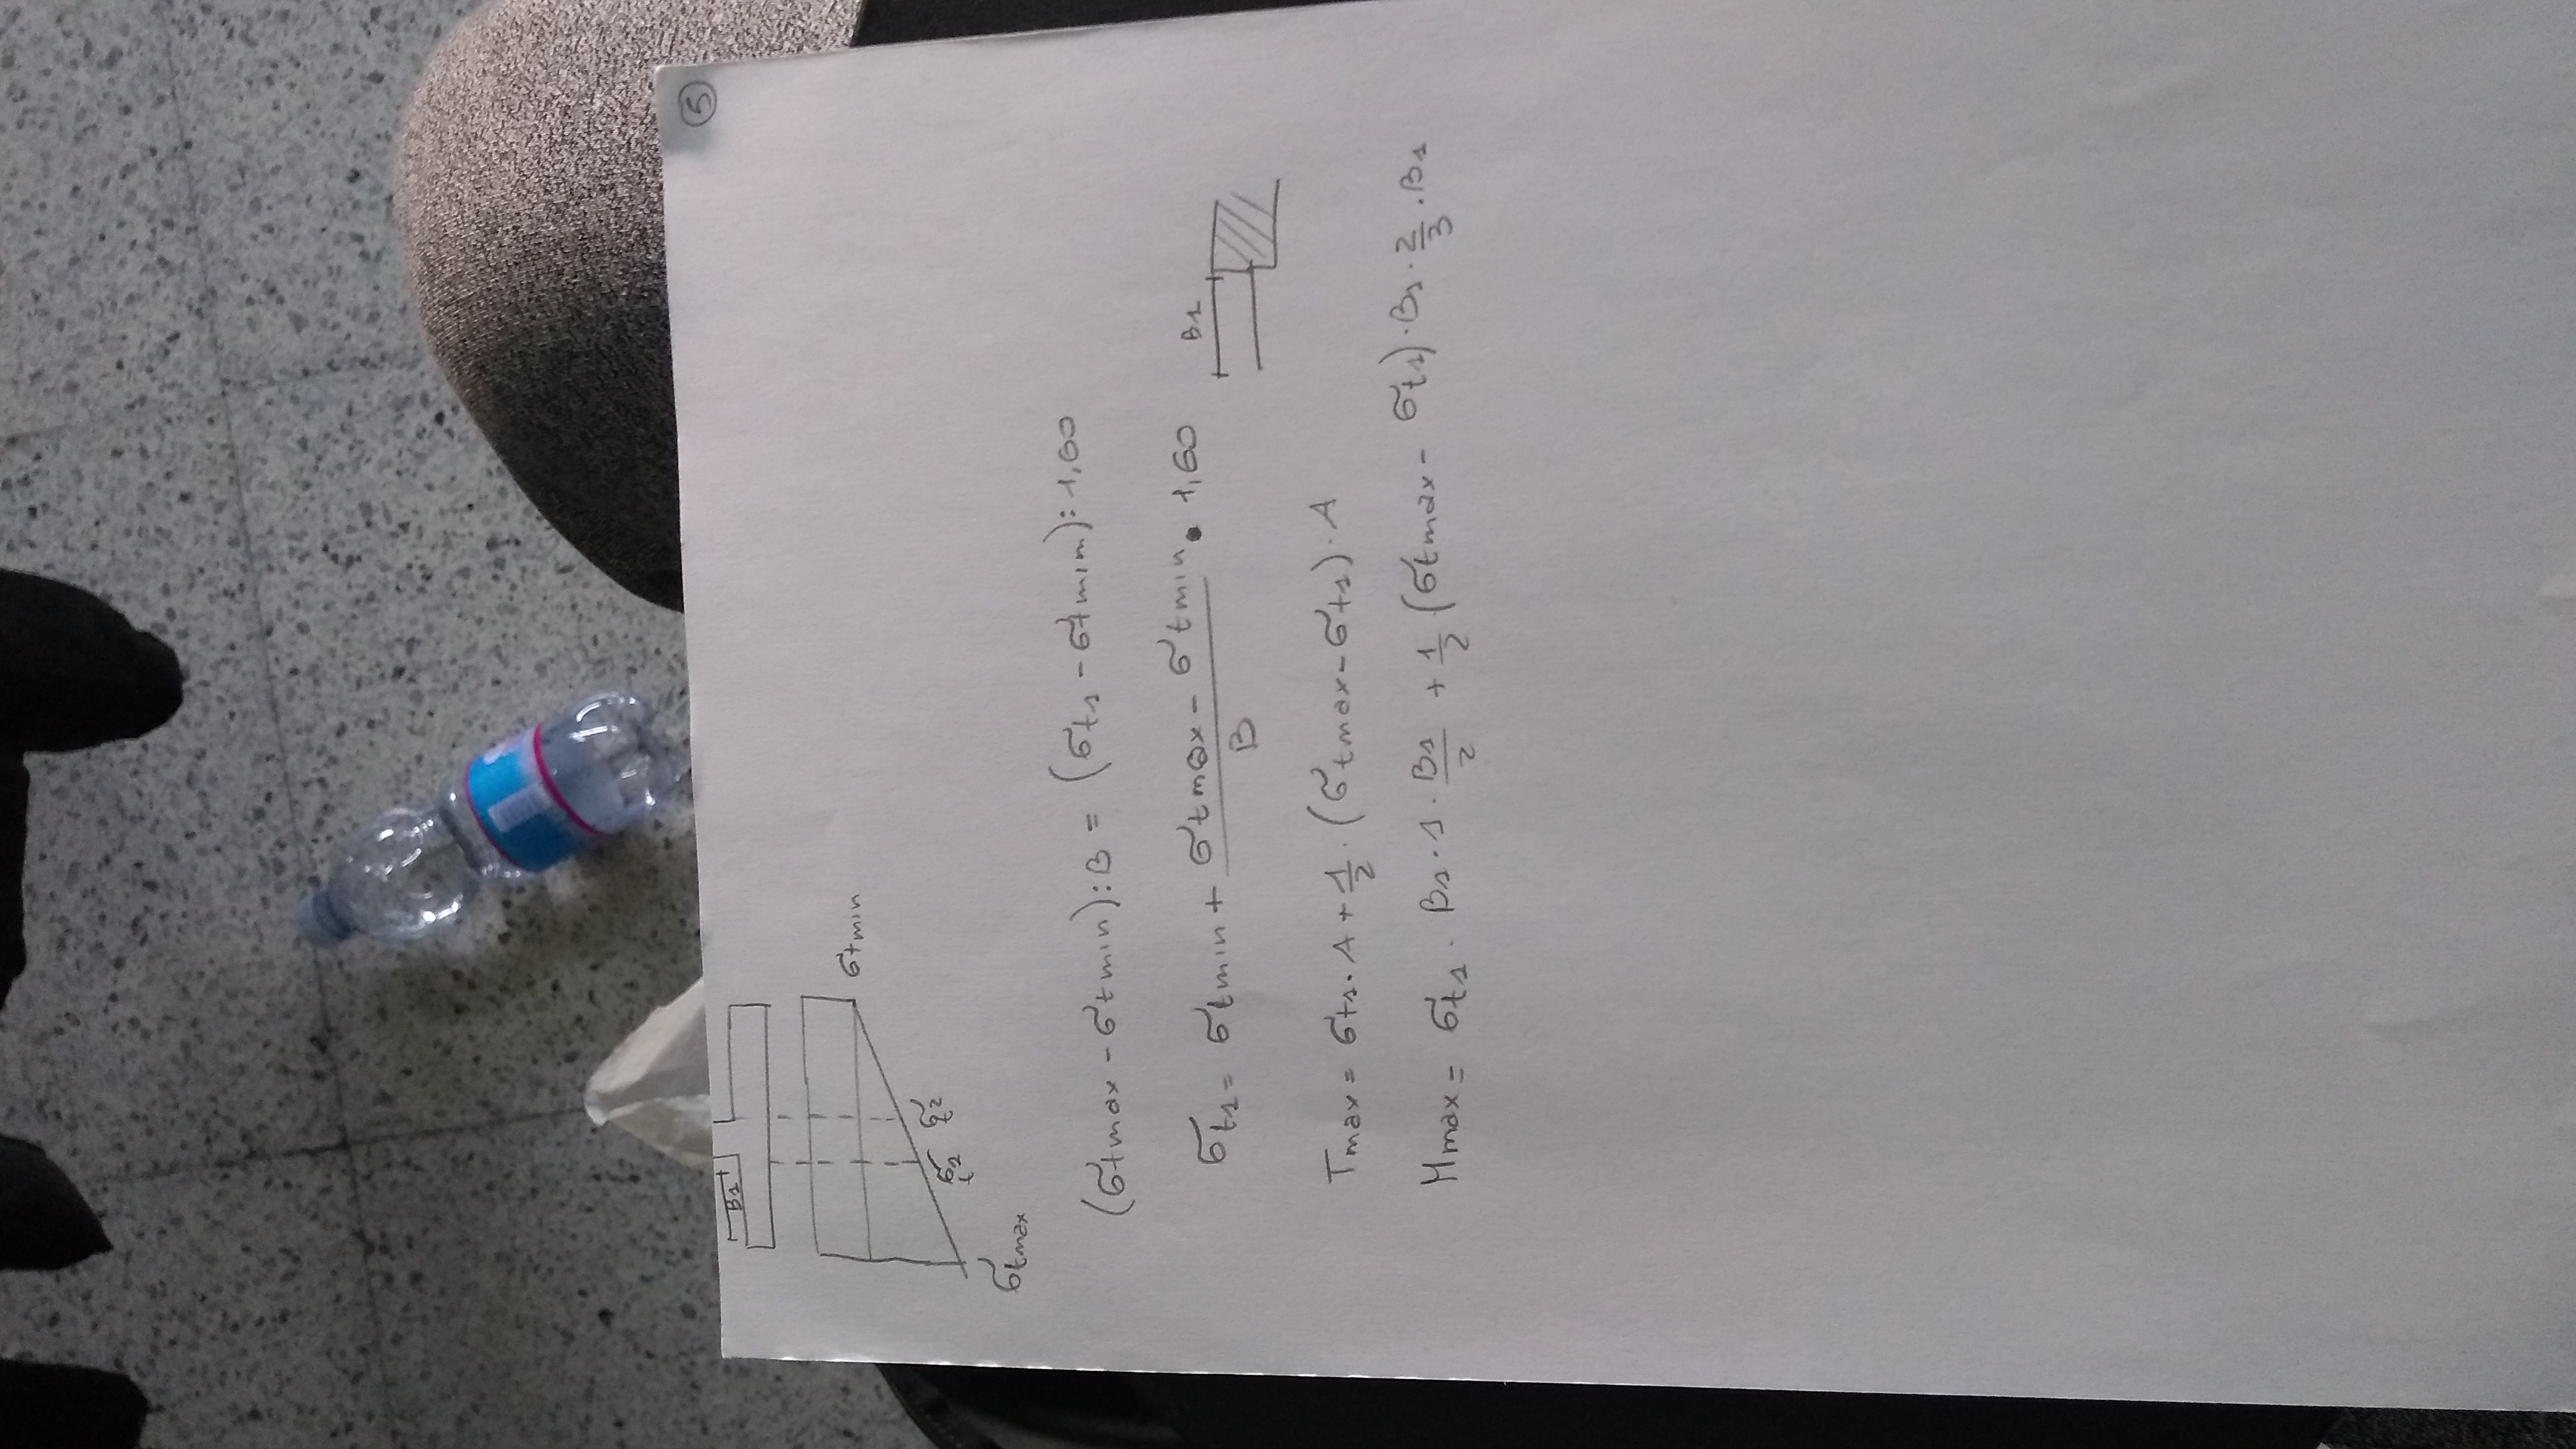 5
B1
σtmin
σt1 σt2
σtmax
(σtmax - σtmin):B = (σt1 - σtmin):1,60
σt1 = σtmin + (σtmax - σtmin)/B · 1,60
B1
Tmax = σt1 · A + 1/2 · (σtmax - σt1) · A
Mmax = σt1 · B1 · 1 · B1/2 + 1/2 (σtmax - σt1) · B1 · 2/3 · B1